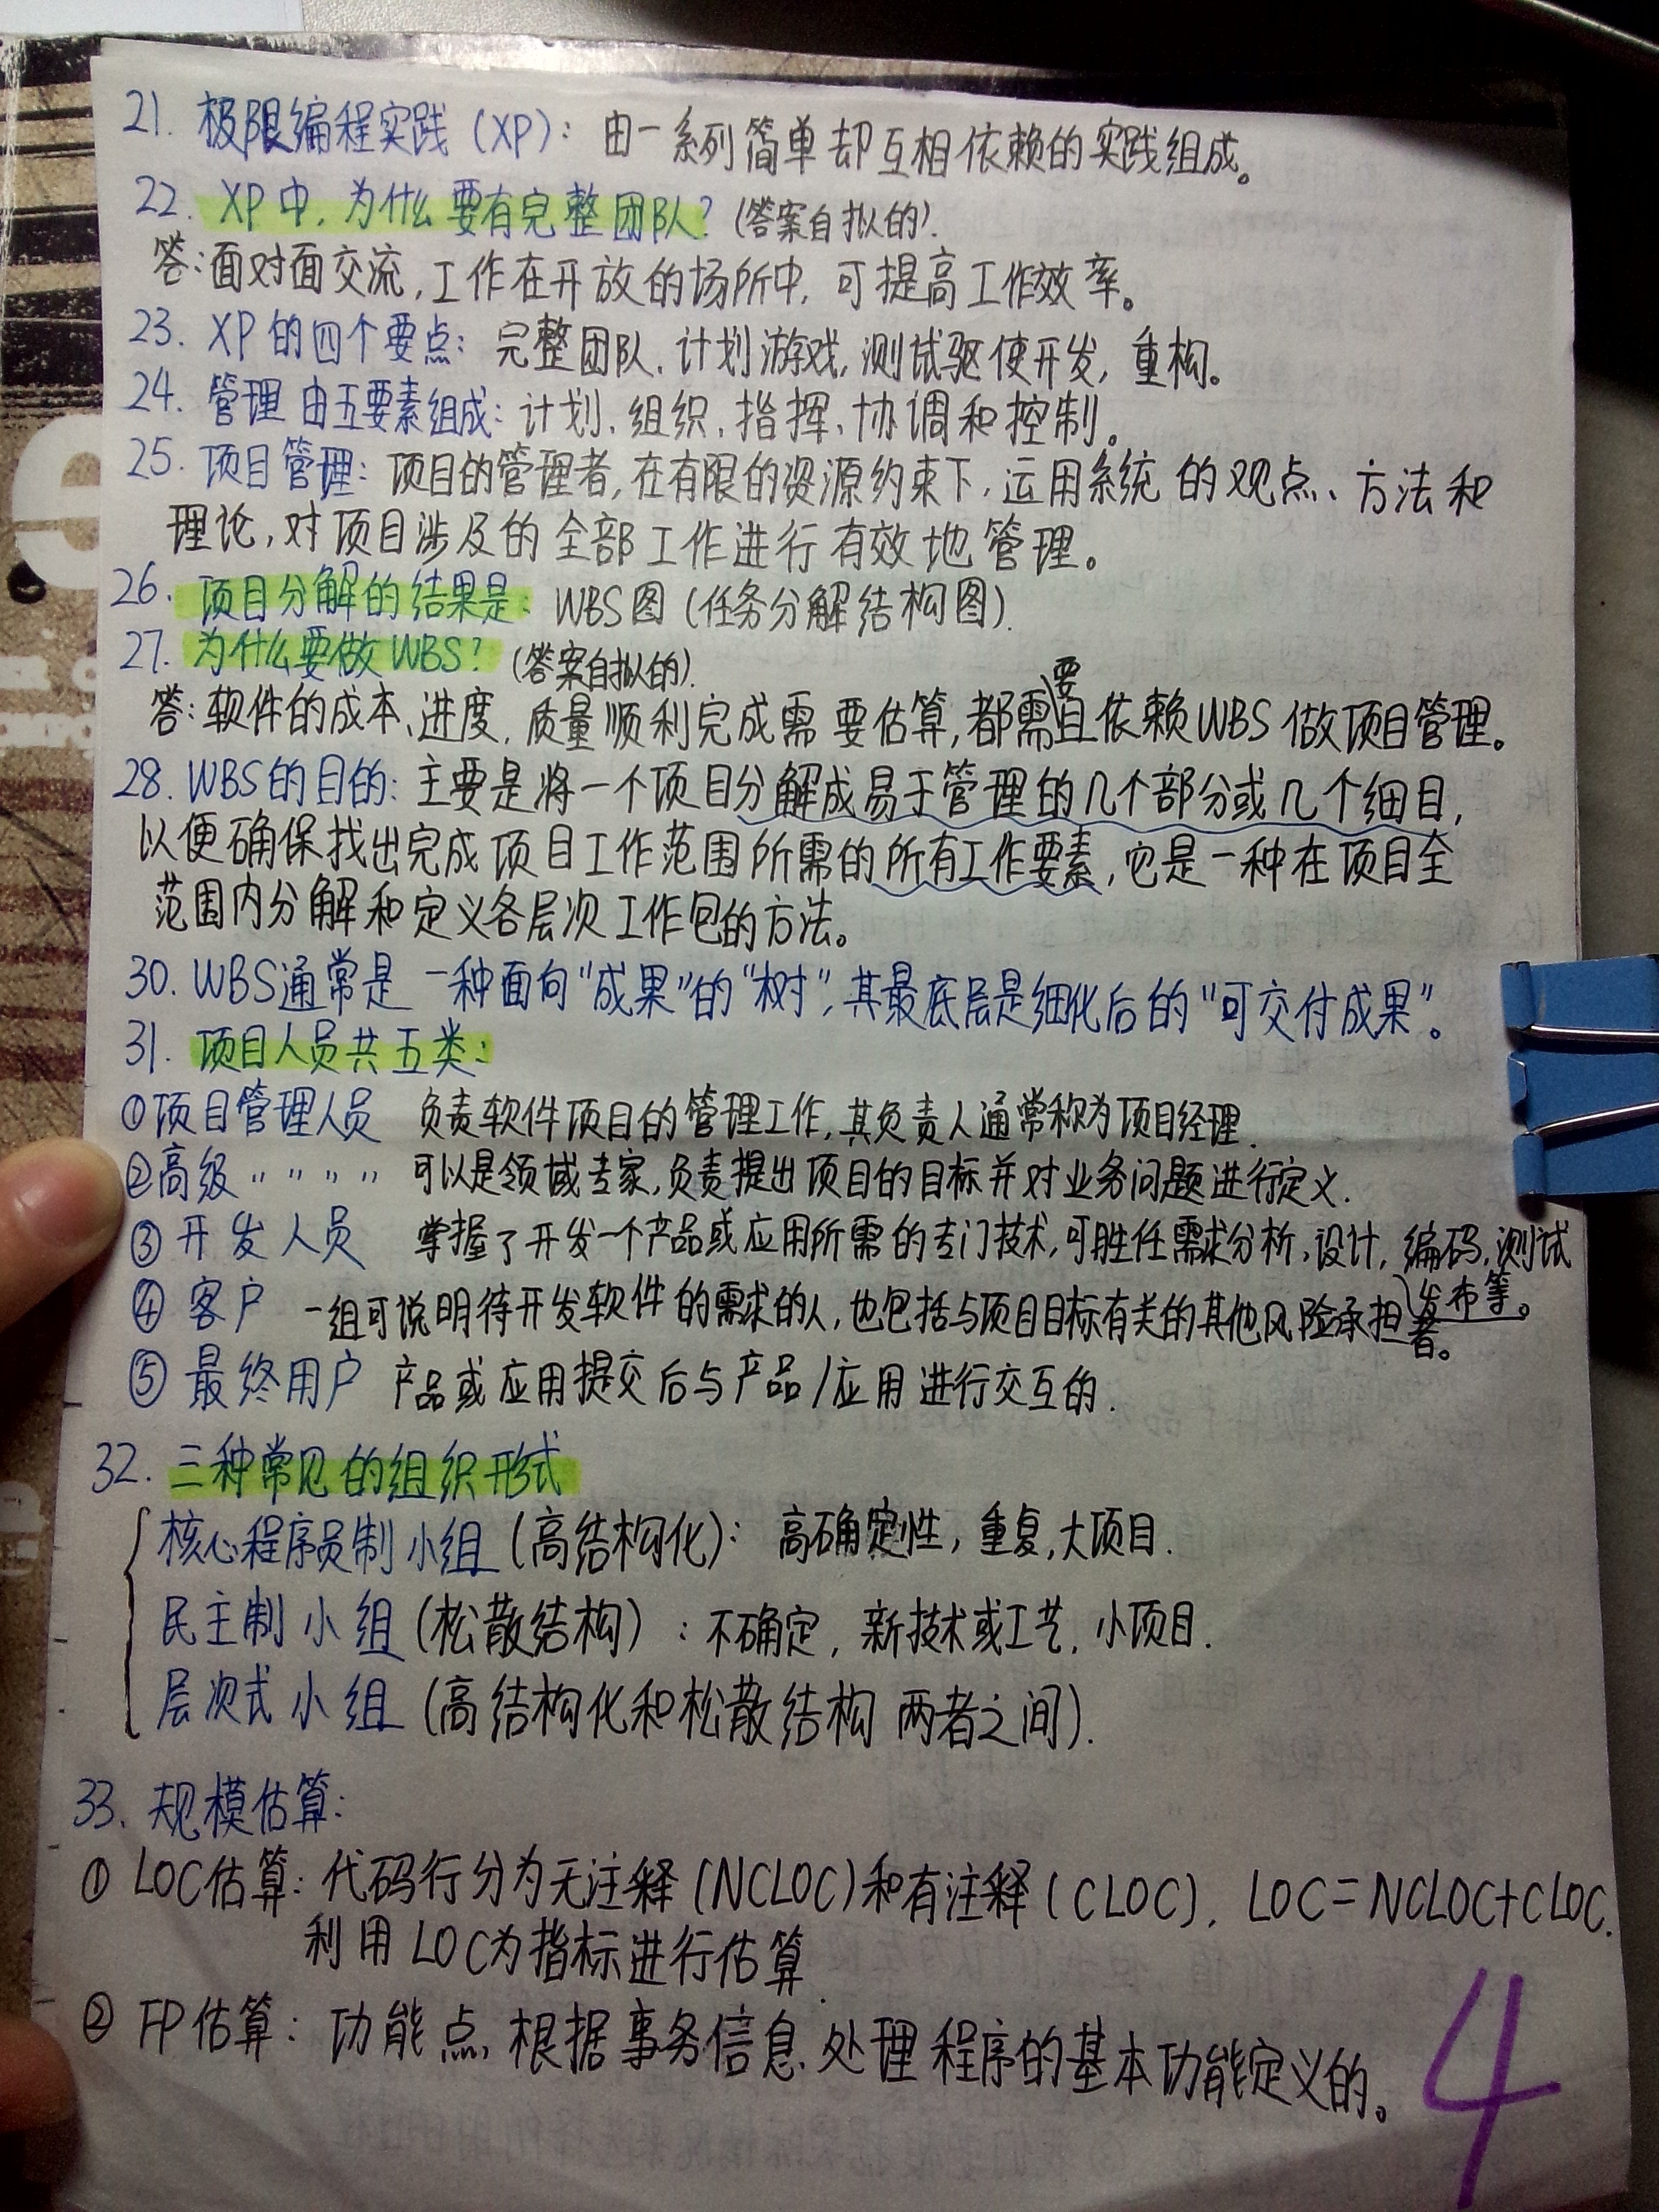 21. 极限编程实践（XP）：由一系列简单却互相依赖的实践组成。
22. XP中，为什么要有完整团队？（答案自拟的）.
答：面对面交流，工作在开放的场所中，可提高工作效率。
23. XP的四个要点：完整团队、计划游戏，测试驱使开发，重构。
24. 管理由五要素组成：计划、组织、指挥、协调和控制。
25. 项目管理：项目的管理者，在有限的资源约束下，运用系统的观点、方法和
理论，对项目涉及的全部工作进行有效地管理。
26. 项目分解的结果是：WBS图（任务分解结构图）.
27. 为什么要做WBS？（答案自拟的）.
答：软件的成本、进度、质量顺利完成需要估算，都需要且依赖WBS做项目管理。
28. WBS的目的：主要是将一个项目分解成易于管理的几个部分或几个细目，
以便确保找出完成项目工作范围所需的所有工作要素，它是一种在项目全
范围内分解和定义各层次工作包的方法。
30. WBS通常是一种面向“成果”的“树”，其最底层是细化后的“可交付成果”。
31. 项目人员共五类：
①项目管理人员 负责软件项目的管理工作，其负责人通常称为项目经理.
②高级 〃 〃 〃 〃 可以是领域专家，负责提出项目的目标并对业务问题进行定义.
③ 开发人员 掌握了开发一个产品或应用所需的专门技术，可胜任需求分析，设计，编码，测试
发布等。
④ 客户 一组可说明待开发软件的需求的人，也包括与项目目标有关的其他风险承担者。
⑤ 最终用户 产品或应用提交后与产品/应用进行交互的.
32. 三种常见的组织形式
核心程序员制小组（高结构化）：高确定性，重复，大项目.
民主制小组（松散结构）：不确定，新技术或工艺，小项目.
层次式小组（高结构化和松散结构两者之间）.
33. 规模估算：
① LOC估算：代码行分为无注释（NCLOC）和有注释（CLOC），LOC=NCLOC+CLOC.
利用LOC为指标进行估算.
② FP估算：功能点，根据事务信息处理程序的基本功能定义的。
4